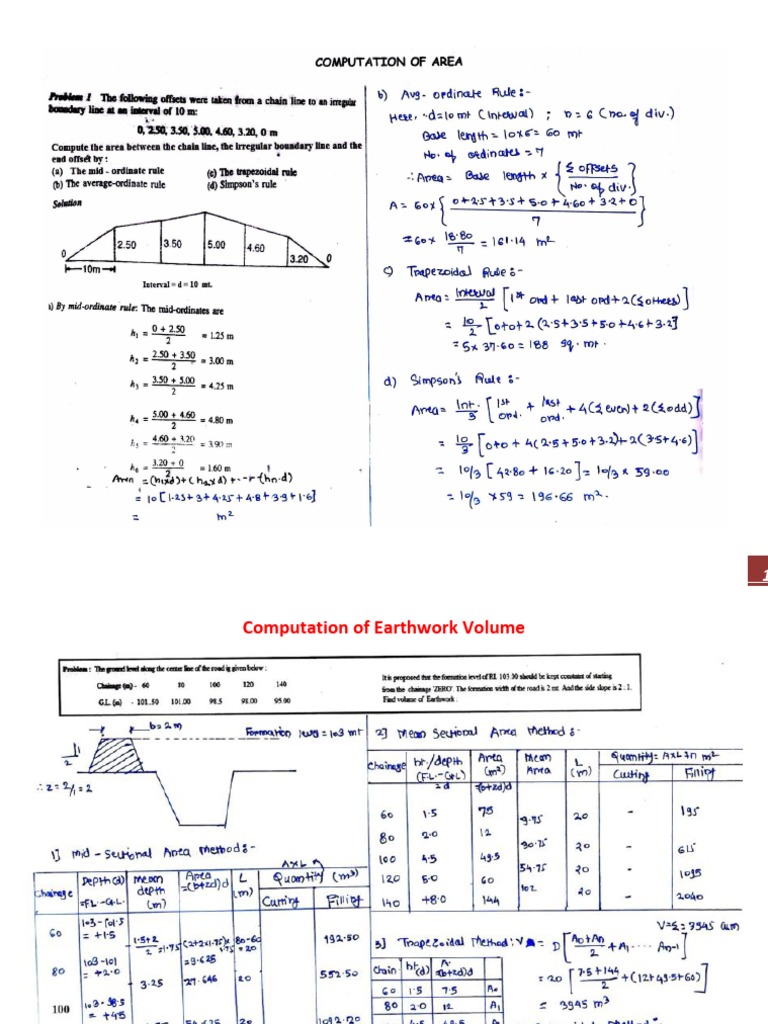 COMPUTATION OF AREA
Problem 1 The following offsets were taken from a chain line to an irregular
boundary line at an interval of 10 m:
0, 2.50, 3.50, 5.00, 4.60, 3.20, 0 m
Compute the area between the chain line, the irregular boundary line and the
end offset by :
(a) The mid - ordinate rule (c) The trapezoidal rule
(b) The average-ordinate rule (d) Simpson's rule
Solution
0 2.50 3.50 5.00 4.60 3.20 0
10m
Interval = d = 10 mt.
a) By mid-ordinate rule: The mid-ordinates are
h1 = 0 + 2.50 / 2 = 1.25 m
h2 = 2.50 + 3.50 / 2 = 3.00 m
h3 = 3.50 + 5.00 / 2 = 4.25 m
h4 = 5.00 + 4.60 / 2 = 4.80 m
h5 = 4.60 + 3.20 / 2 = 3.90 m
h6 = 3.20 + 0 / 2 = 1.60 m
Area = (h1xd)+(h2xd)+--+(hn.d)
= 10[1.25+3+4.25+4.8+3.9+1.6]
= m2
b) Avg- ordinate Rule:-
Here, d=10mt (Interval) ; n=6 (no. of div.)
Base length = 10x6 = 60 mt
No. of ordinates = 7
∴ Area = Base length x { Σ offsets / No. of div. }
A = 60x{ 0+2.5+3.5+5.0+4.60+3.2+0 / 7 }
= 60x 18.80 / 7 = 161.14 m2
c) Trapezoidal Rule:-
Area = Interval / 2 [1st ord + last ord + 2(Σ others)]
= 10/2 [0+0+2(2.5+3.5+5.0+4.6+3.2]
= 5x 37.60 = 188 sq. mt.
d) Simpson's Rule:-
Area = Int. / 3 [1st ord. + last ord. + 4(Σ even) + 2(Σ odd)]
= 10/3 [0+0+4(2.5+5.0+3.2)+2(3.5+4.6)]
= 10/3 [42.80 + 16.20] = 10/3 x 59.00
= 10/3 x 59 = 196.66 m2.
1
Computation of Earthwork Volume
Problem : The ground level along the center line of the road is given below :
Chainage (m) - 60 80 100 120 140
G.L. (m) - 101.50 101.00 98.5 98.00 95.00
It is proposed that the formation level of R.L 103.00 should be kept constant of starting
from the chainage 'ZERO'. The formation width of the road is 2 mt. And the side slope is 2 : 1.
Find volume of Earthwork :
b=2m
Formation level = 103 mt
1
2
∴ z = 2/1 = 2
1] Mid - Sectional Area Method:-
Chainage Depth(d) =FL-GL. Mean depth (m) Area =(b+zd)d L (m) AxL Quantity (m3) Cutting Filling
60 103-101.5 = +1.5 1.5+2/2 =1.75 (2+2x1.75)x1.75 = 9.625 80-60 =20 192.50
80 103-101 = +2.0 3.25 27.646 20 552.50
100 103-98.5 = +4.5 54.625 20 1092.20
2] Mean Sectional Area Method:-
Chainage ht./depth (FL-GL) d Area (m2) (b+zd)d Mean Area L (m) Quantity = AxL in m2 Cutting Filling
60 1.5 7.5 9.75 20 - 195
80 2.0 12 30.75 20 - 615
100 4.5 49.5 54.75 20 - 1095
120 5.0 60 102 20 - 2040
140 +8.0 144
V=Σ=3945 cum
3] Trapezoidal Method: V = D[A0+An / 2 + A1 .... An-1]
Chain ht(d) A (b+zd)d
60 1.5 7.5 A0
80 2.0 12 A1
4.5 49.5
= 20 [7.5+144 / 2 + (12+49.5+60)]
= 3945 m3